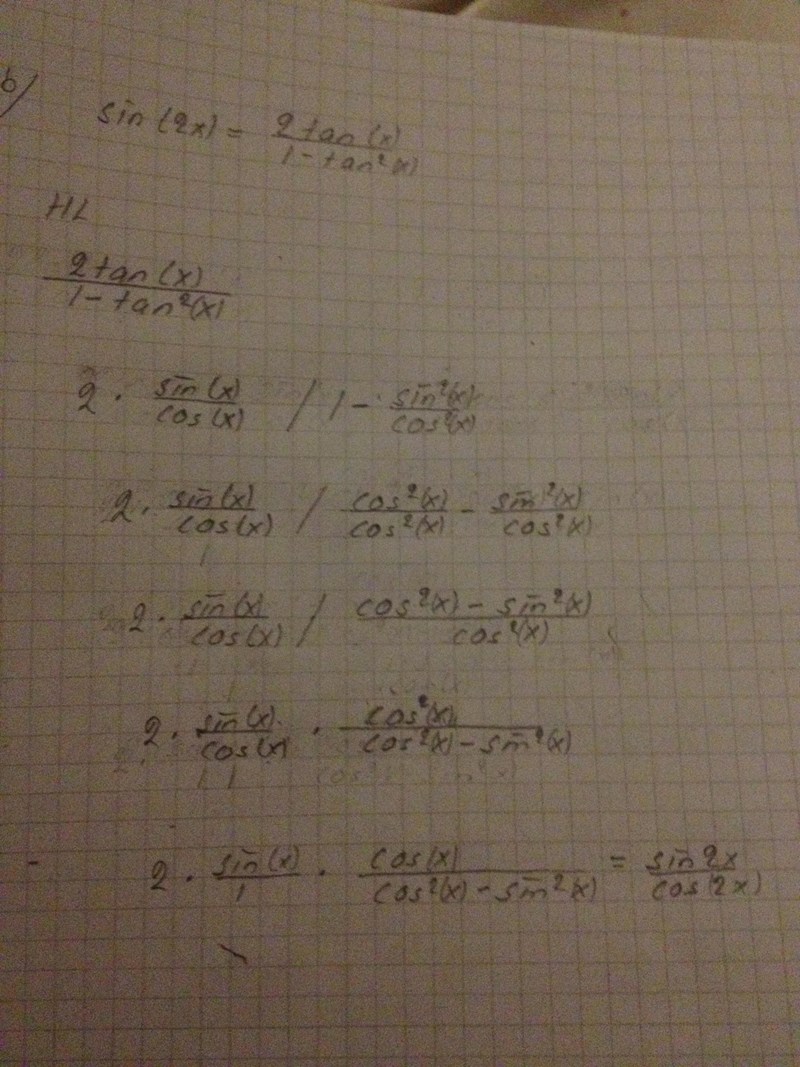 b/
sin(2x) = 2tan(x) / 1-tan²(x)
HL
2tan(x) / 1-tan²(x)
2 · sin(x)/cos(x) / 1 - sin²(x)/cos²(x)
2 · sin(x)/cos(x) / cos²(x)/cos²(x) - sin²(x)/cos²(x)
2 · sin(x)/cos(x) / cos²(x) - sin²(x)/cos²(x)
2 · sin(x)/cos(x) · cos²(x)/cos²(x) - sin²(x)
2 · sin(x)/1 · cos(x)/cos²(x) - sin²(x) = sin2x/cos(2x)